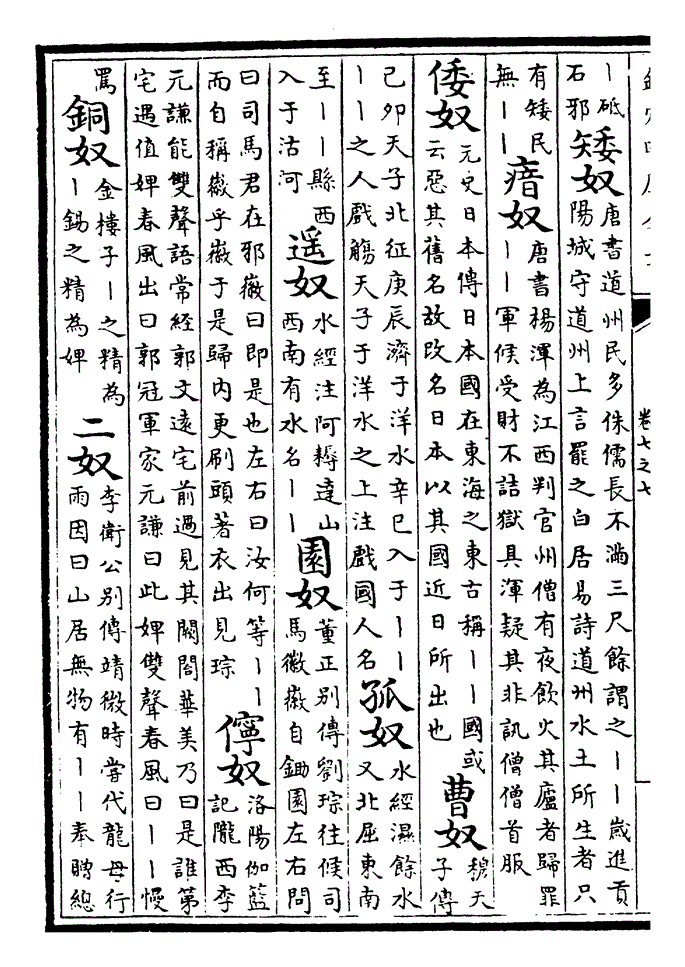 卷七之七
丨砥
石邪
矮奴
唐書道州民多侏儒長不滿三尺餘謂之丨丨歲進貢
陽城守道州上言罷之白居易詩道州水土所生者只
有矮民
無丨丨
瘖奴
唐書楊渾為江西判官州僧有夜飲火其廬者歸罪
丨丨軍候受財不詰獄具渾疑其非訊僧僧首服
倭奴
元史日本傳日本國在東海之東古稱丨丨國或
云惡其舊名故改名日本以其國近日所出也
曹奴
穆天
子傳
己卯天子北征庚辰濟于洋水辛巳入于丨丨
丨丨之人戲觴天子于洋水之上注戲國人名
孤奴
水經濕餘水
又北屈東南
至丨丨縣西
入于沽河
遥奴
水經注阿耨達山
西南有水名丨丨
園奴
董正別傳劉琮往候司
馬徽徽自鋤園左右問
曰司馬君在邪徽曰即是也左右曰汝何等丨丨
而自稱徽乎徽于是歸内更刷頭著衣出見琮
儜奴
洛陽伽藍
記隴西李
元謙能雙聲語常經郭文遠宅前過見其閥閤華美乃曰是誰第
宅遇值婢春風出曰郭冠軍家元謙曰此婢雙聲春風曰丨丨慢
罵
銅奴
金樓子丨之精為
丨錫之精為婢
二奴
李衛公別傳靖微時嘗代龍母行
雨因曰山居無物有丨丨奉贈總